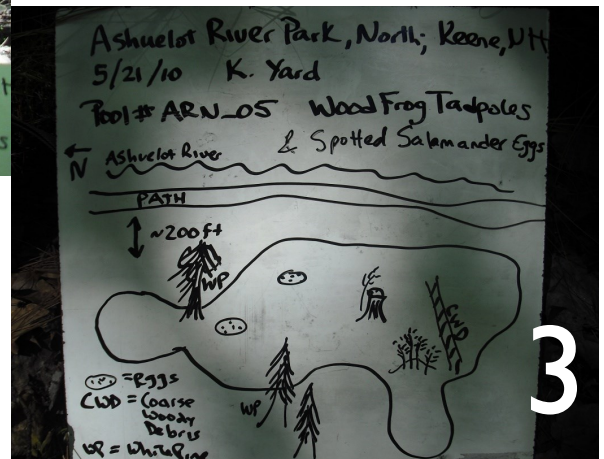 Ashuelot River Park, North; Keene, NH
5/21/10 K. Yard
Pool # ARN_05 Wood Frog Tadpoles
& Spotted Salamander Eggs
N Ashuelot River
PATH
~200ft
WP
CWD
WP
= Eggs
CWD = Coarse
Woody
Debris
WP = White Pine
3